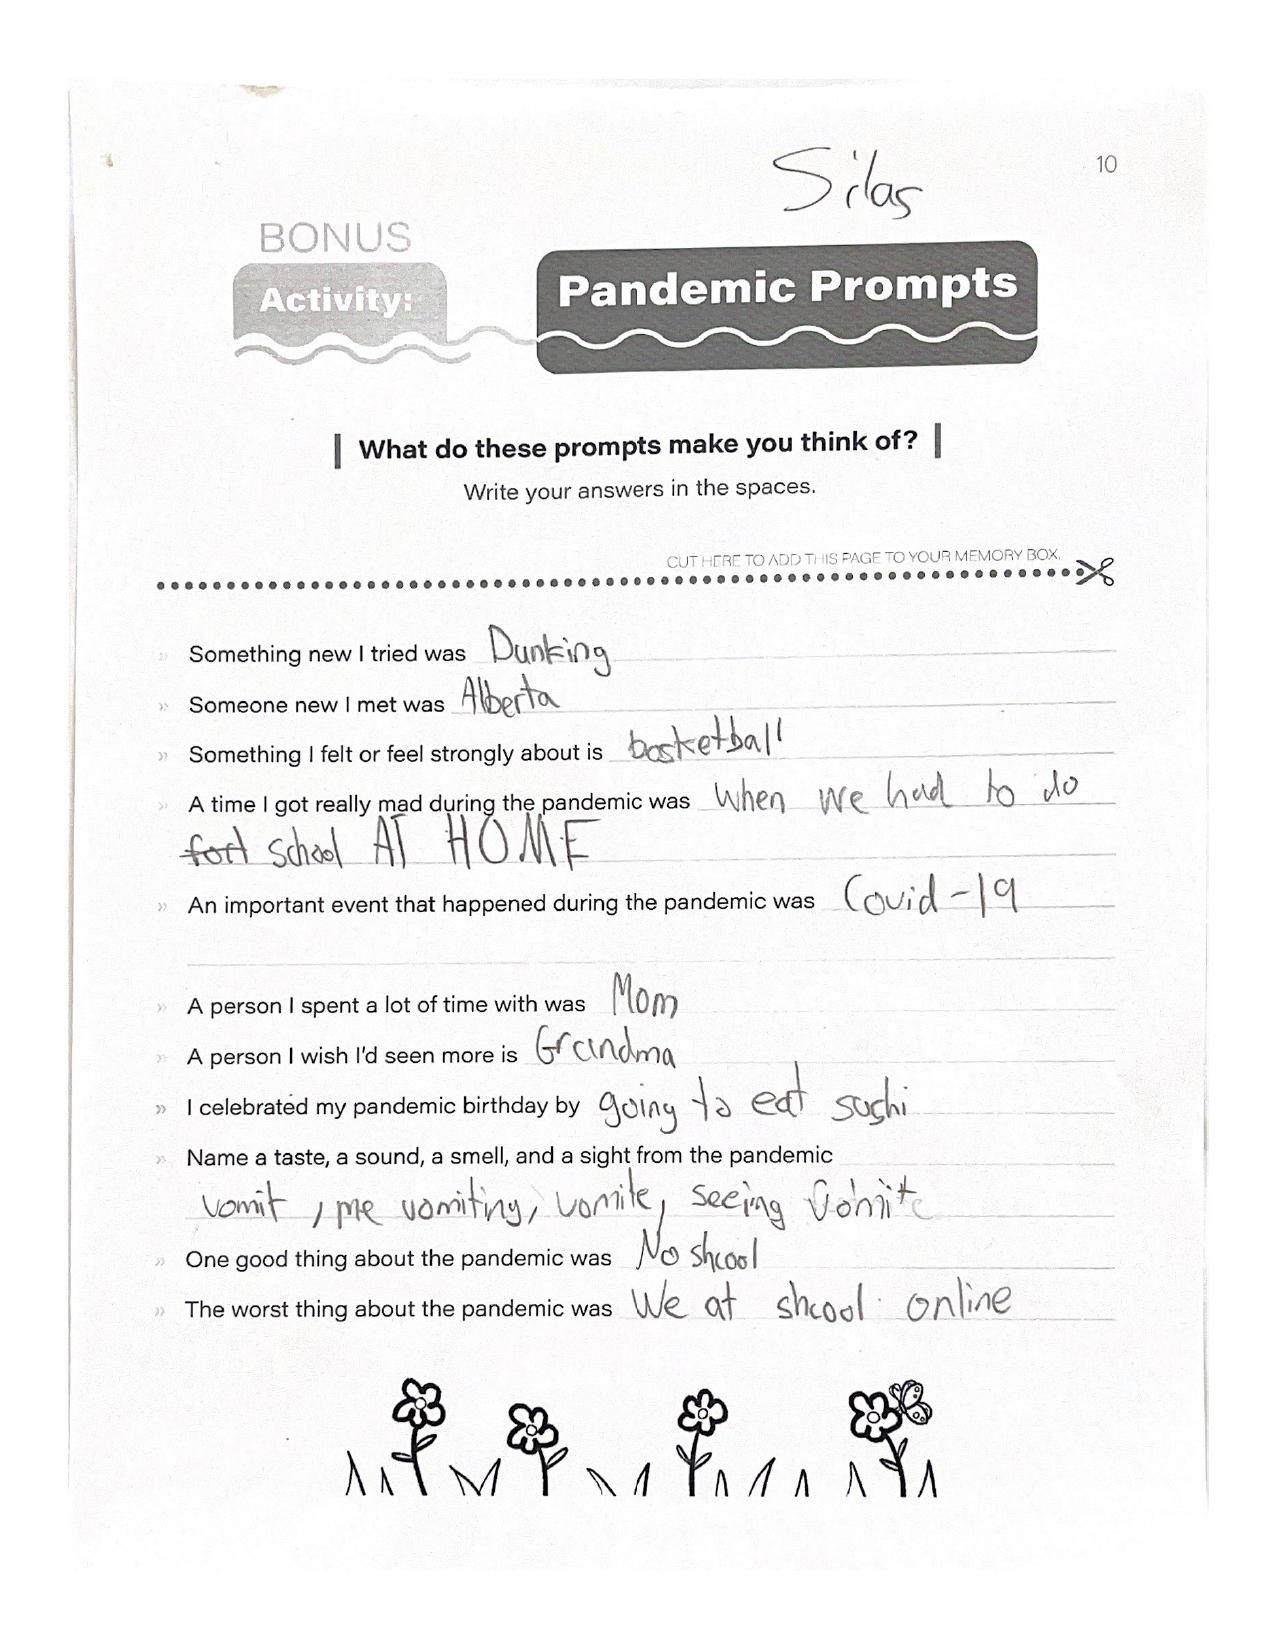 Silas
10
BONUS
Activity:
Pandemic Prompts
What do these prompts make you think of?
Write your answers in the spaces.
CUT HERE TO ADD THIS PAGE TO YOUR MEMORY BOX.
» Something new I tried was Dunking
» Someone new I met was Alberta
» Something I felt or feel strongly about is basketball
» A time I got really mad during the pandemic was when we had to do
fort school AT HOME
» An important event that happened during the pandemic was Covid-19
» A person I spent a lot of time with was Mom
» A person I wish I'd seen more is Grandma
» I celebrated my pandemic birthday by going to eat sushi
» Name a taste, a sound, a smell, and a sight from the pandemic
vomit, me vomiting, vomite, seeing vomite
» One good thing about the pandemic was No shcool
» The worst thing about the pandemic was We at shcool online